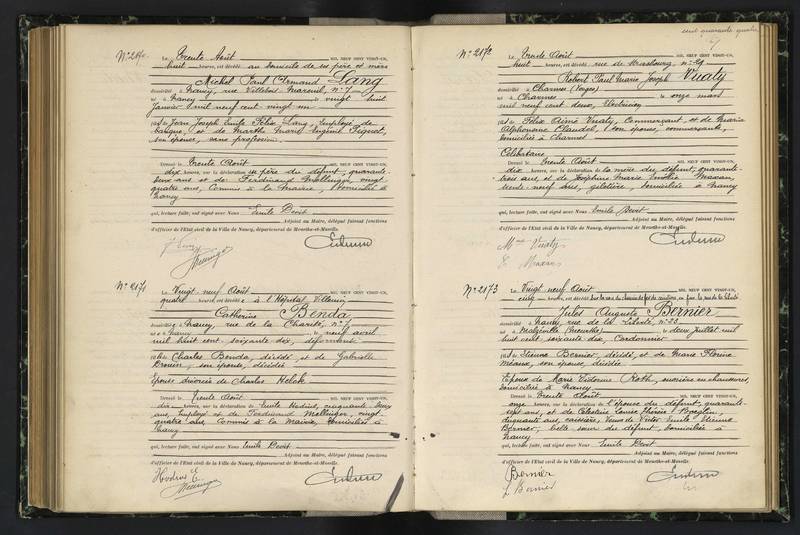 Le Trente Août MIL NEUF CENT VINGT-UN,
huit heures, est décédé au domicile de ses père et mère
Michel Paul Armand Lang
domicilié à Nancy, rue Villebois Mareuil, n° 7
né à Nancy le vingt huit
janvier mil neuf cent vingt un
fils de Jean Joseph Emile Félix Lang, employé de
banque, et de Marthe Marie Eugénie
son épouse, sans profession.
Dressé le Trente Août MIL NEUF CENT VINGT-UN,
dix heures, sur la déclaration du père du défunt, quarante
deux ans et de Ferdinand Mellinger, vingt
quatre ans, Commis à la Mairie, domiciliés à
Nancy
qui, lecture faite, ont signé avec Nous Emile Devit
Adjoint au Maire, délégué faisant fonctions
d'officier de l'Etat civil de la Ville de Nancy, département de Meurthe-et-Moselle.
N° 2171
Le Vingt-neuf Août MIL NEUF CENT VINGT-UN,
quatre heures, est décédée à l'Hôpital Villemin
Catherine Benda
domiciliée à Nancy, rue de la Charité, n° 7
née à Nancy le neuf avril
mil huit cent soixante dix,
fille de Charles Benda, décédé, et de Gabrielle
son épouse, décédée
Epouse divorcée de Charles
Dressé le Trente Août MIL NEUF CENT VINGT-UN,
dix heures, sur la déclaration de Emile
ans, employé et de Ferdinand Mellinger, vingt
quatre ans, Commis à la Mairie, domiciliés à
Nancy
qui, lecture faite, ont signé avec Nous Emile Devit
Adjoint au Maire, délégué faisant fonctions
d'officier de l'Etat civil de la Ville de Nancy, département de Meurthe-et-Moselle.
cent quarante quatre
N° 2172
Le Trente Août MIL NEUF CENT VINGT-UN,
huit heures, est décédé rue de Strasbourg, n°
Robert Paul Marie Joseph Vuaty
domicilié à Charmes (Vosges)
né à Charmes le onze mars
mil neuf cent deux, Electricien
fils de Félix Aimé Vuaty, Commerçant, et de Marie
Alphonsine Claudel, son épouse, commerçante,
domiciliés à Charmes
Célibataire
Dressé le Trente Août MIL NEUF CENT VINGT-UN,
dix heures, sur la déclaration de la mère du défunt, quarante-
trois ans, et de Joséphine Marie
trente-neuf ans, giletière, domiciliée à Nancy
qui, lecture faite, ont signé avec Nous Emile Devit
Adjoint au Maire, délégué faisant fonctions
d'officier de l'Etat civil de la Ville de Nancy, département de Meurthe-et-Moselle.
Mme Vuaty
N° 2173
Le Vingt neuf Août MIL NEUF CENT VINGT-UN,
cinq heures, est décédé
Jules Auguste Bernier
domicilié à Nancy, rue de la Liberté, n° 33
né à Malzéville (Meurthe) le deux juillet mil
huit cent soixante dix, Cordonnier
fils de Etienne Bernier, décédé, et de Marie Florine
son épouse, décédée
Epoux de Marie Victorine Roth, ouvrière en chaussures,
domiciliée à Nancy
Dressé le Trente Août MIL NEUF CENT VINGT-UN,
onze heures, sur la déclaration de l'épouse du défunt, quarante-
sept ans, et de Célestine Louise Thérèse
cinquante ans, caissière, Veuve de Victor Emile Etienne
Bernier, belle sœur du défunt, domiciliée à
Nancy
qui, lecture faite, ont signé avec Nous Emile Devit
Adjoint au Maire, délégué faisant fonctions
d'officier de l'Etat civil de la Ville de Nancy, département de Meurthe-et-Moselle.
Bernier
L Bernier